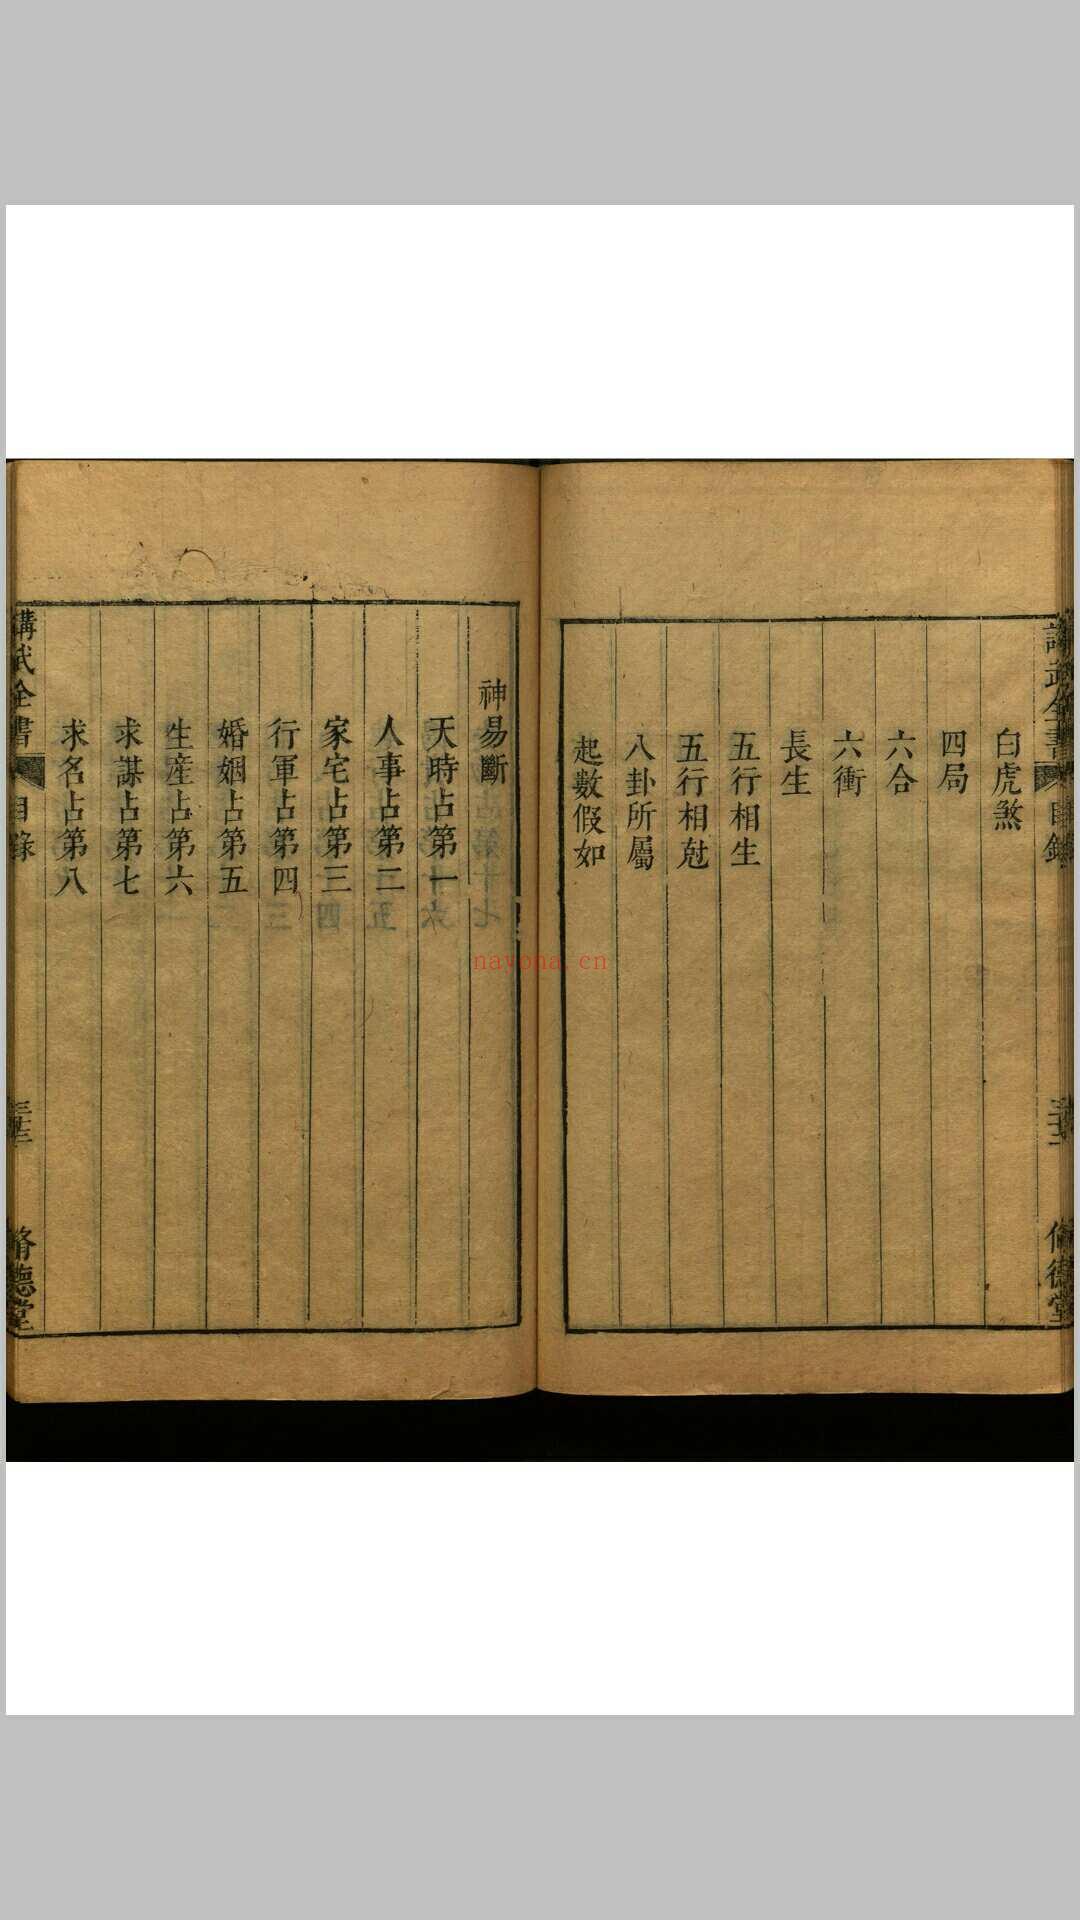 白虎煞
四局
六合
六衝
長生
五行相生
五行相尅
八卦所屬
起數假如
神易斷
天時占第一
人事占第二
家宅占第三
行軍占第四
婚姻占第五
生産占第六
求謀占第七
求名占第八
講武全書 目錄
脩德堂
nayona.cn